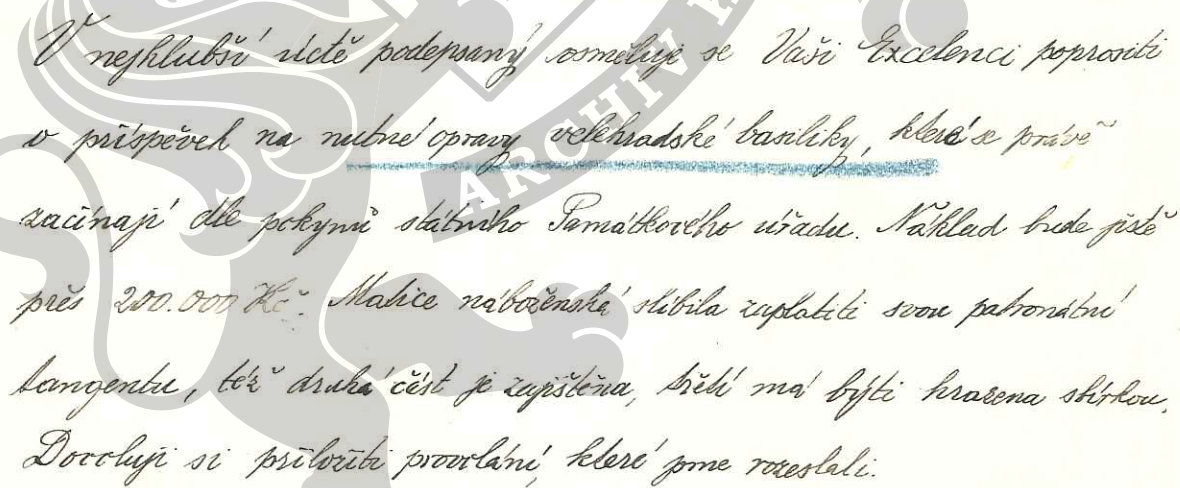 V nejhlubší úctě podepsaný osměluji se Vaši Excelenci poprositi
o příspěvek na nutné opravy velehradské basiliky, které se právě
začínají dle pokynů státního Památkového úřadu. Náklad bude jistě
přes 200.000 Kč. Matice náboženská slíbila zaplatiti svou patronátní
tangentu, též druhá část je zajištěna, třetí má býti hrazena sbírkou.
Dovoluji si přiložiti provolání, které jsme rozeslali.
ARCHIV